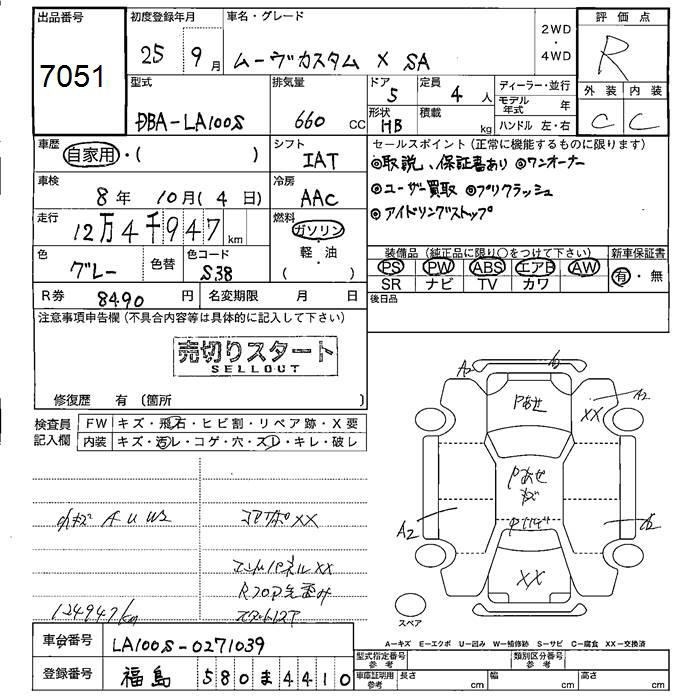 出品番号
7051
初度登録年月
25 9月
車名・グレード
ムーヴカスタム X SA
2WD
・
4WD
評価点
R
外装 内装
C C
型式
DBA-LA100S
排気量
660 CC
ドア
5
定員
4 人
形状
HB
積載
kg
ディーラー・並行
モデル年式 年
ハンドル 左・右
車歴
自家用・( )
シフト
IAT
セールスポイント(正常に機能するものに限ります)
◎取説、保証書あり ◎ワンオーナー
◎ユーザー買取 ◎プリクラッシュ
◎アイドリングストップ
車検
8年 10月(4日)
冷房
AAC
走行
12万4千947 km
燃料
ガソリン
軽・油
( )
色
グレー
色替
色コード
S38
装備品(純正品に限り○をつけて下さい)
新車保証書
PS PW ABS エアB AW
SR ナビ TV カワ
有・無
R券 8490 円
名変期限 月 日
後日品
注意事項申告欄(不具合内容等は具体的に記入して下さい)
売切りスタート
SELLOUT
修復歴 有(箇所 )
検査員
記入欄
FW キズ・飛石・ヒビ割・リペア跡・X要
内装 キズ・汚レ・コゲ・穴・スレ・キレ・破レ
A2
A2
Pあせ
XX
Pあせ
A2
XX
コアサポXX
エンドパネルXX
124947km
スペア
A-キズ E-エクボ U-凹み W-補修跡 S-サビ C-腐食 XX-交換済
車台番号
LA100S-0271039
登録番号
福島 580 ま 4410
型式指定番号
参考
類別区分番号
参考
車庫証明用
参考
長さ cm
幅 cm
高さ cm